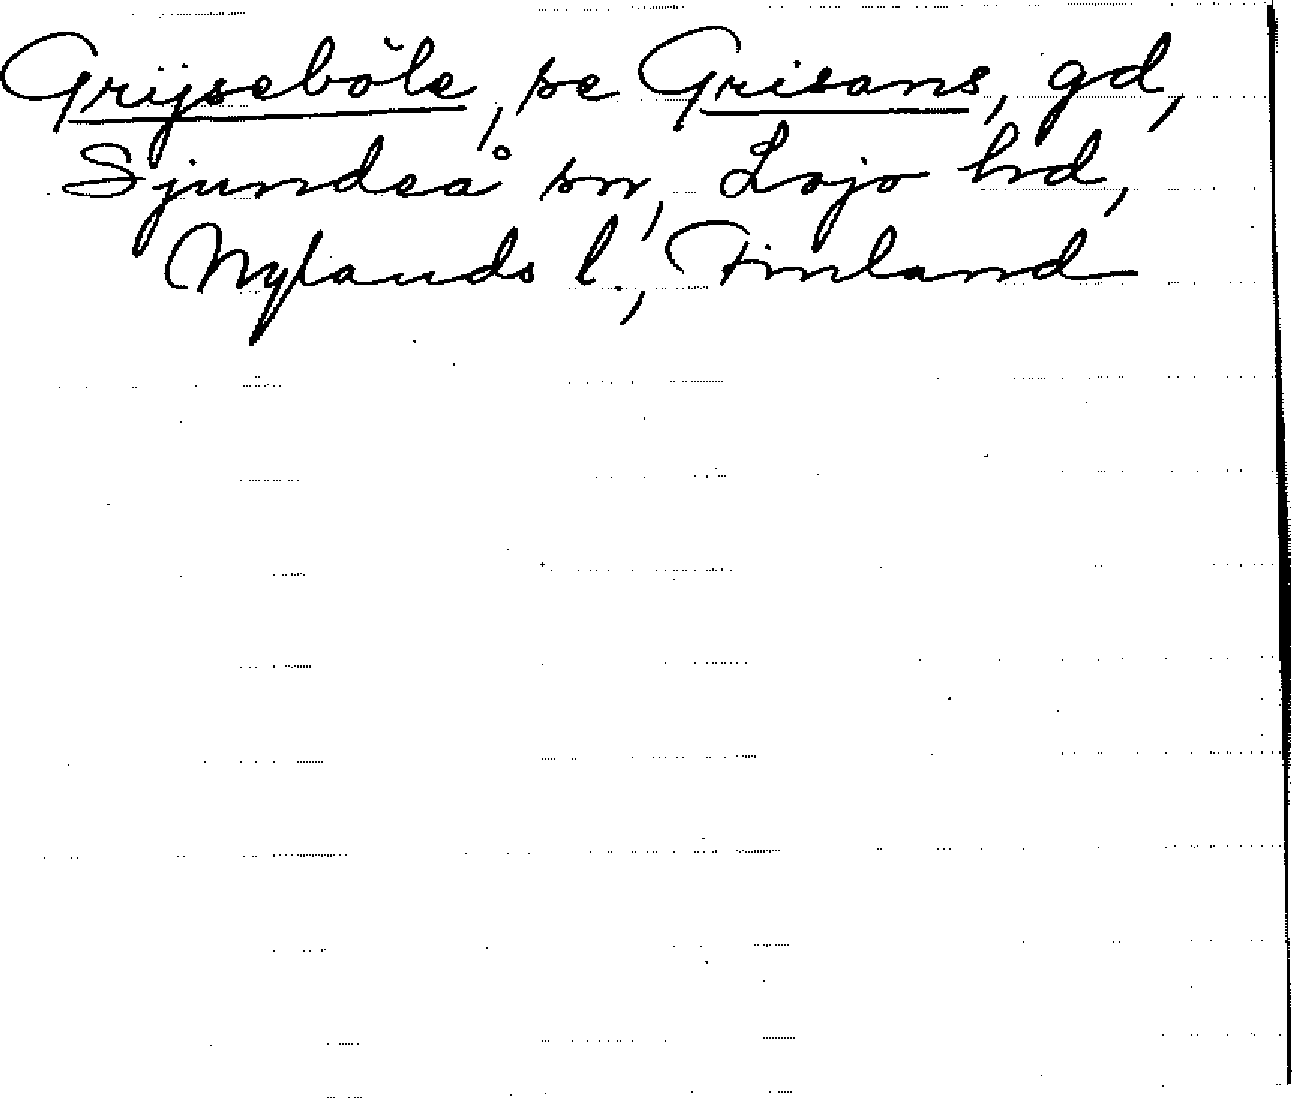 Grijseböle, se Grisans, gd,
Sjundeå sn, Lojo hd,
Nylands l., Finland